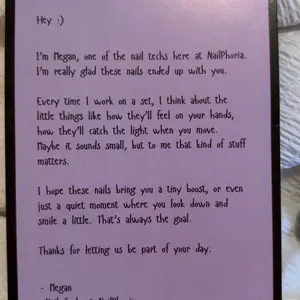 Hey :)
I'm Megan, one of the nail techs here at NailPhoria.
I'm really glad these nails ended up with you.
Every time I work on a set, I think about the
little things like how they'll feel on your hands,
how they'll catch the light when you move.
Maybe it sounds small, but to me that kind of stuff
matters.
I hope these nails bring you a tiny boost, or even
just a quiet moment where you look down and
smile a little. That's always the goal.
Thanks for letting us be part of your day.
- Megan